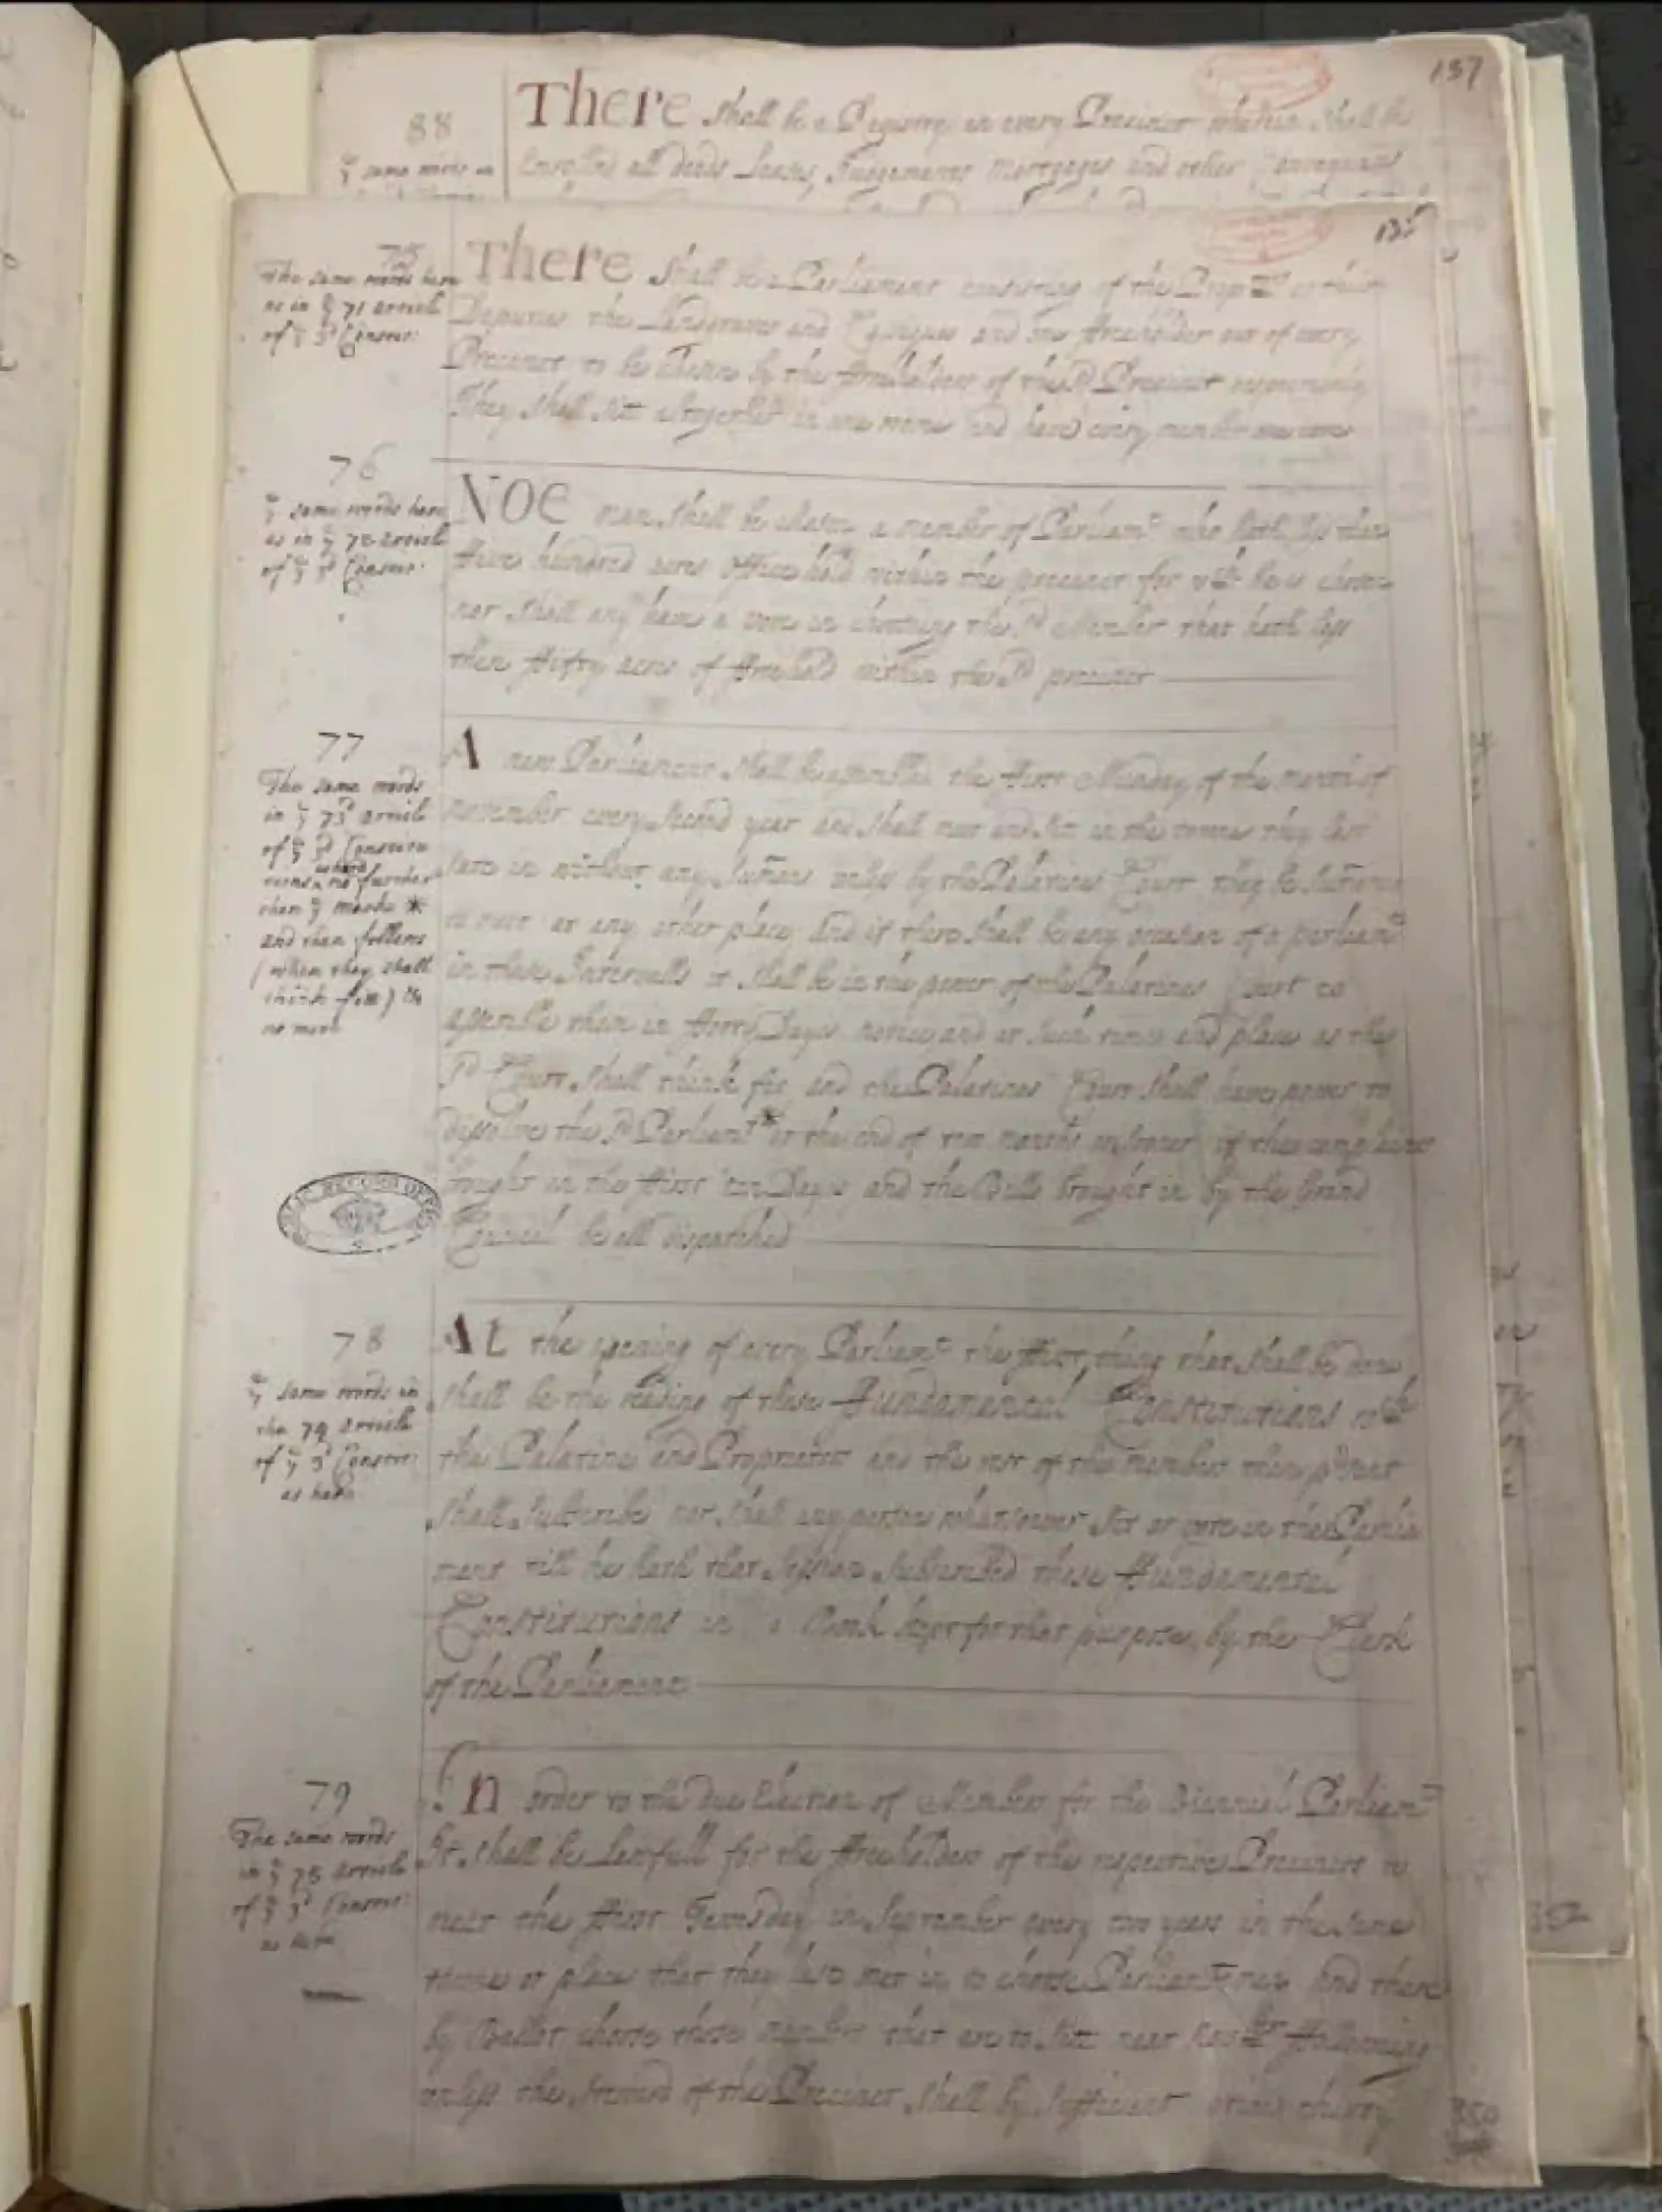 137
88
THere shall be a Registry in every Precinct wherin shall be
Enrolled all deeds Leases, Judgements Mortgages and other Conveyances
ye same words in
135
75
The same words here
as in ye 71 article
of ye 3d Constit:
THere shall be a Parliament consisting of the Proptrs or their
Deputies the Landgraves and Cassiques and one ffreeholder out of every
Precinct to be chosen by the ffreeholders of the sd Precinct respectively
They shall sitt altogether in one roome and have every member one vote
76
ye same words here
as in ye 72 article
of ye 3d Constit:
NOE man shall be chosen a member of Parliamt who hath less then
ffive hundred acres ffreehold within the precinct for wch he is chosen
nor shall any have a vote in choosing the sd Member that hath less
then ffifty acres of ffreehold within the sd precinct
77
The same words
in ye 73d article
of ye 3d Constitu
tions, no further
then ye marke *
and then follows
(when they shall
think fitt) &
no more
A new Parliament shall be assembled the ffirst Munday of the month of
november every second year and shall meet and sitt in the towne they last
sate in without any sumons unless by the Palatines Court they be sumoned
to meet at any other place And if there shall be any occasion of a parliamt
in these Intervalls it shall be in the power of the Palatines Court to
assemble them in fforty Dayes notice and at such time and place as the
sd Court shall think fit and the Palatines Court shall have power to
dissolve the sd Parliamt * at the end of two months
in the ffirst Dayes and the Bills brought in by the Grand
Councill be all dispatched
78
ye same words in
the 74 article
of ye 3d Constit:
as here
At the opening of every Parliamt the ffirst thing that shall be done
shall be the reading of these Fundamental Constitutions wch
the Palatine and Proprietor and the rest of the members then present
shall subscribe nor shall any person whatsoever sit or vote in the Parlia
ment till he hath that session subscribed these Fundamental
Constitutions in a Book kept for that purpose by the Clerk
of the Parliament
79
The same words
in ye 75 article
of ye 3d Constit:
as here
In order to the due Election of Members for the Biennial Parliamt
It shall be Lawfull for the ffreeholders of the respective Precincts to
meet the ffirst Tuesday in September every two years in the same
towne or place that they last met in to choose Parliamt men And there
by Ballot choose those members that are to sitt next Novr ffollowing
unless the steward of the Precinct shall by sufficient notice thirty
350